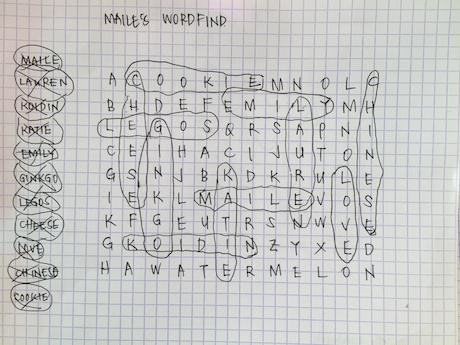 MAILE'S WORDFIND
MAILE
LAUREN
KOLDIN
KATIE
EMILY
GINKGO
LEGOS
CHEESE
LOVE
CHINESE
COOKIE
A C O O K I E M N O L C
B H D E F E M I L Y M H
L E G O S Q R S A P N I
C E I H A C I J U T O N
G S N J B K D K R U L E
I E K L M A I L E V O S
K F G E U T R S N W V E
G K O L D I N Z Y X E D
H A W A T E R M E L O N